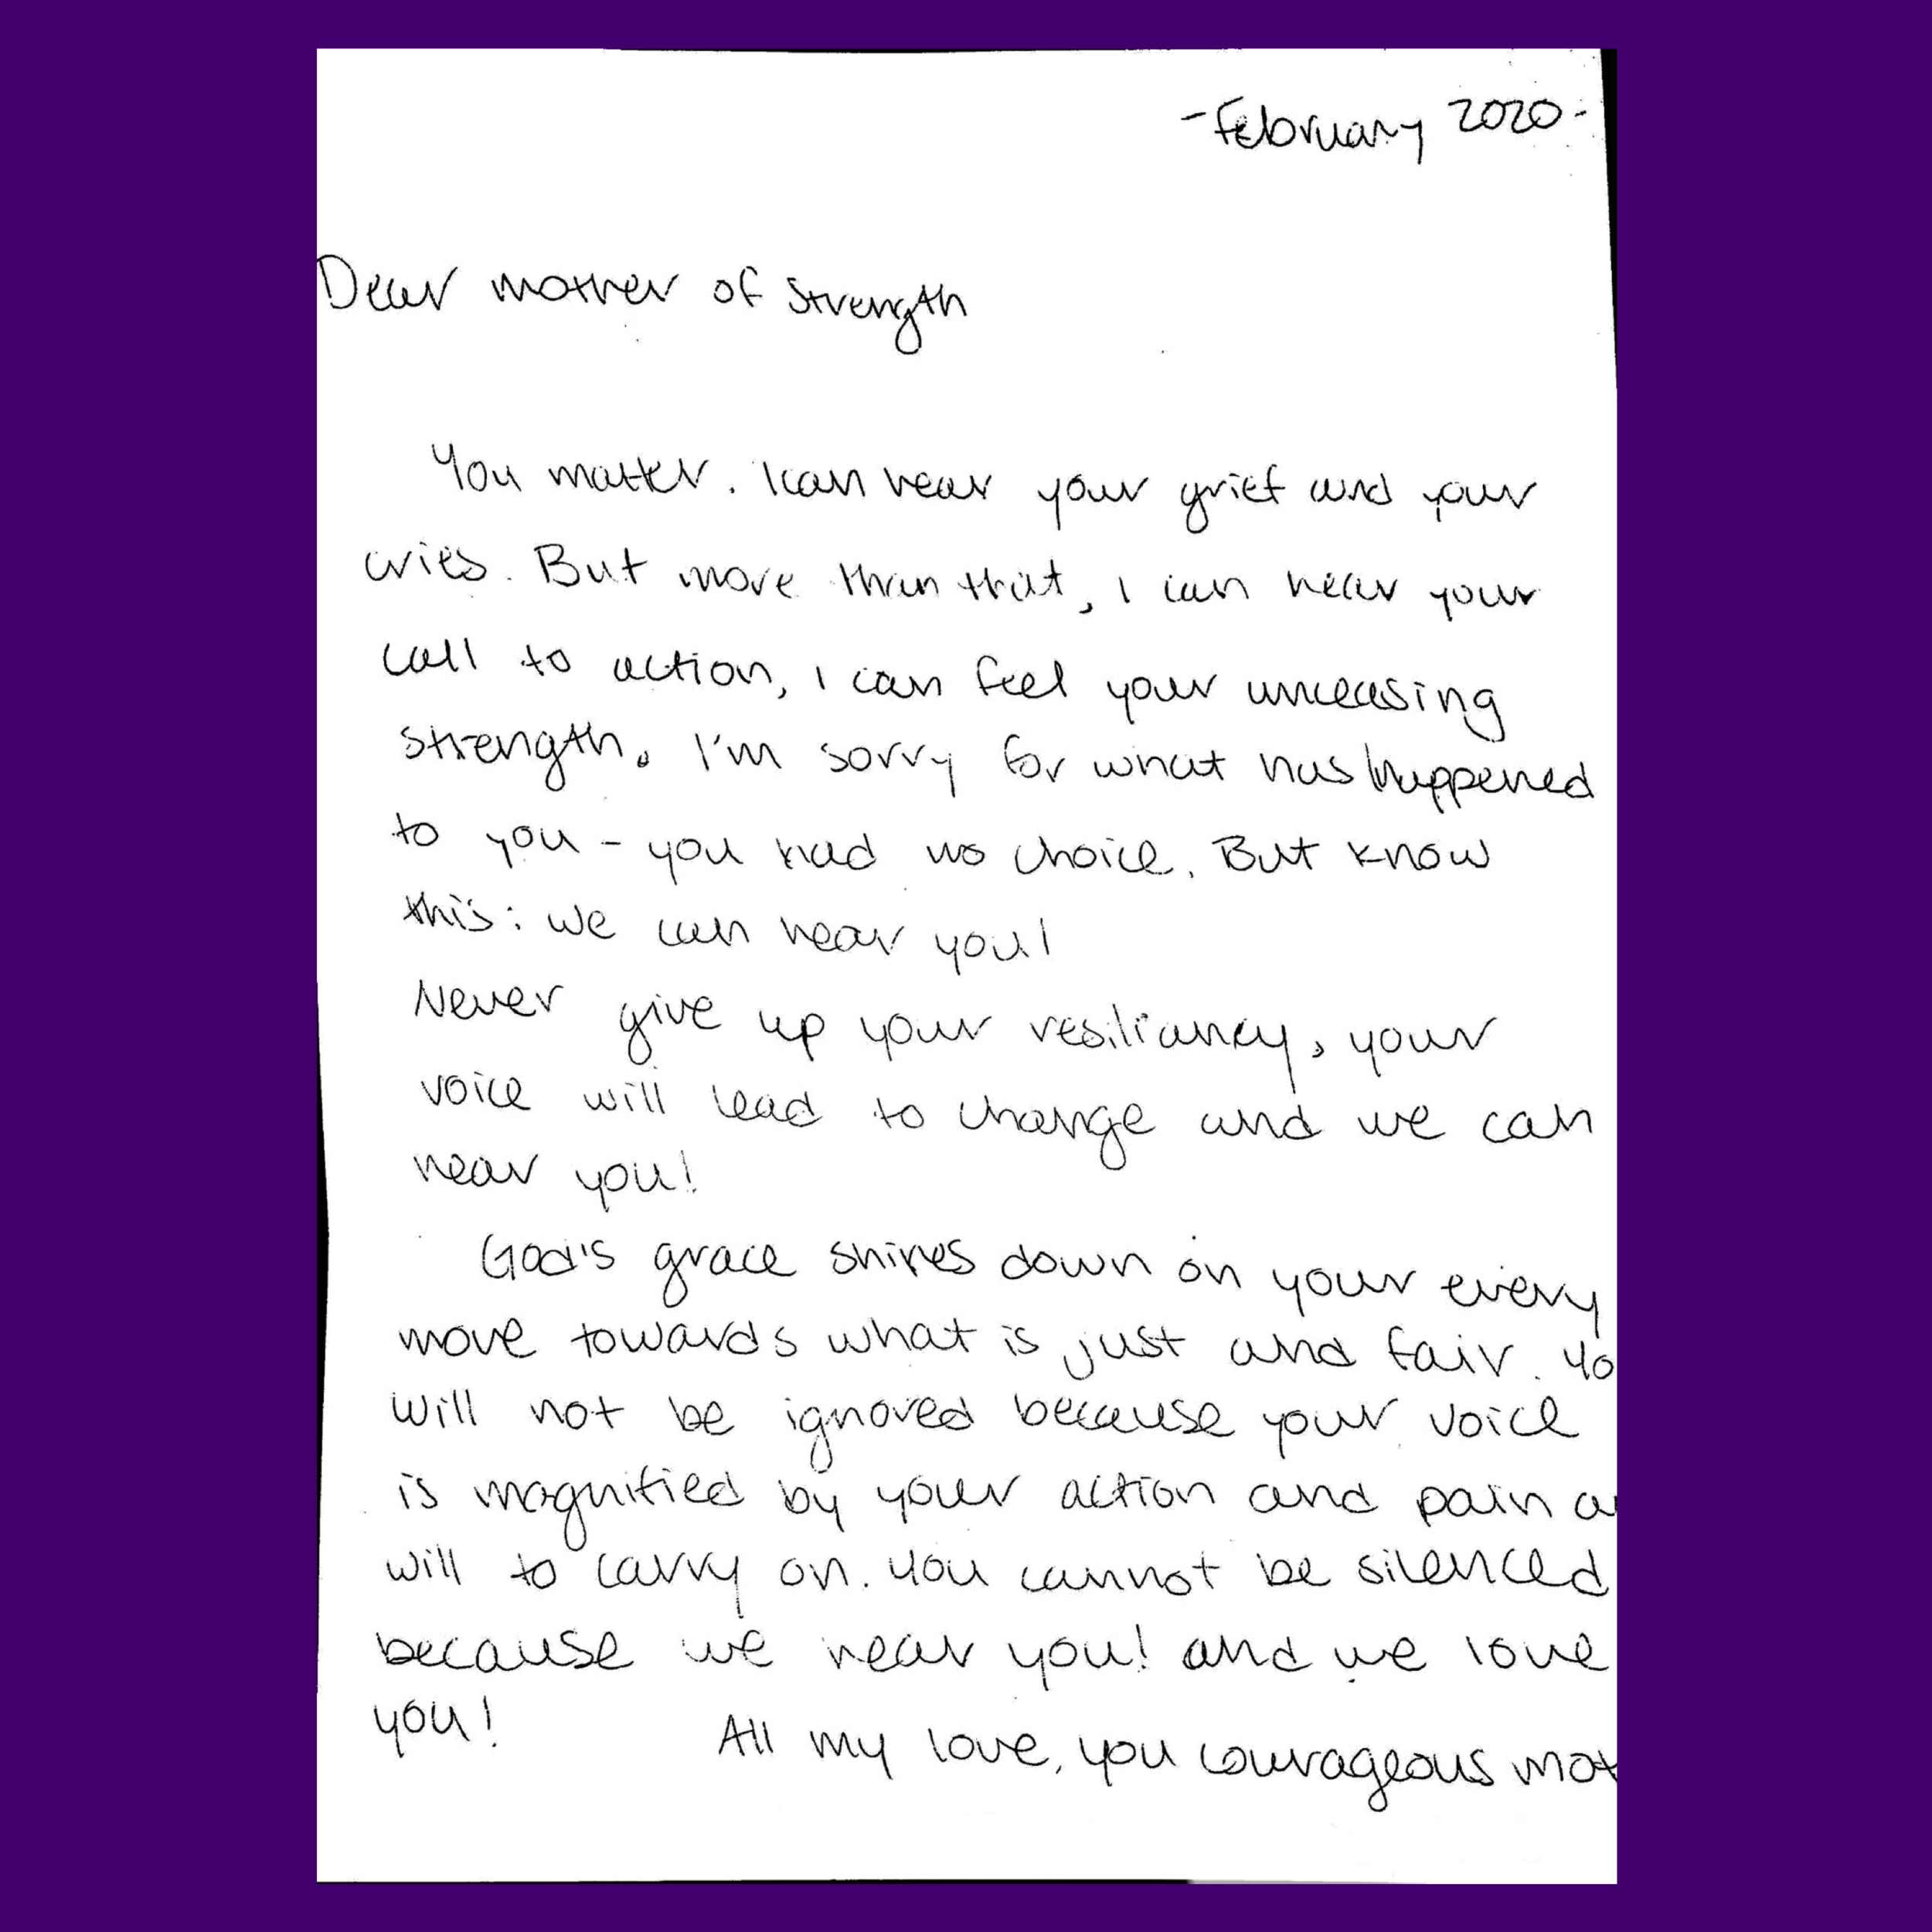 -February 2020-
Dear mother of strength
You matter. I can hear your grief and your
cries. But more than that, I can hear your
call to action, I can feel your unceasing
strength. I'm sorry for what has happened
to you - you had no choice. But know
this: we can hear you!
Never give up your resiliancy, your
voice will lead to change and we can
hear you!
God's grace shines down on your every
move towards what is just and fair. Yo
will not be ignored because your voice
is magnified by your action and pain a
will to carry on. You cannot be silenced
because we hear you! and we love
you!
All my love, you courageous mot